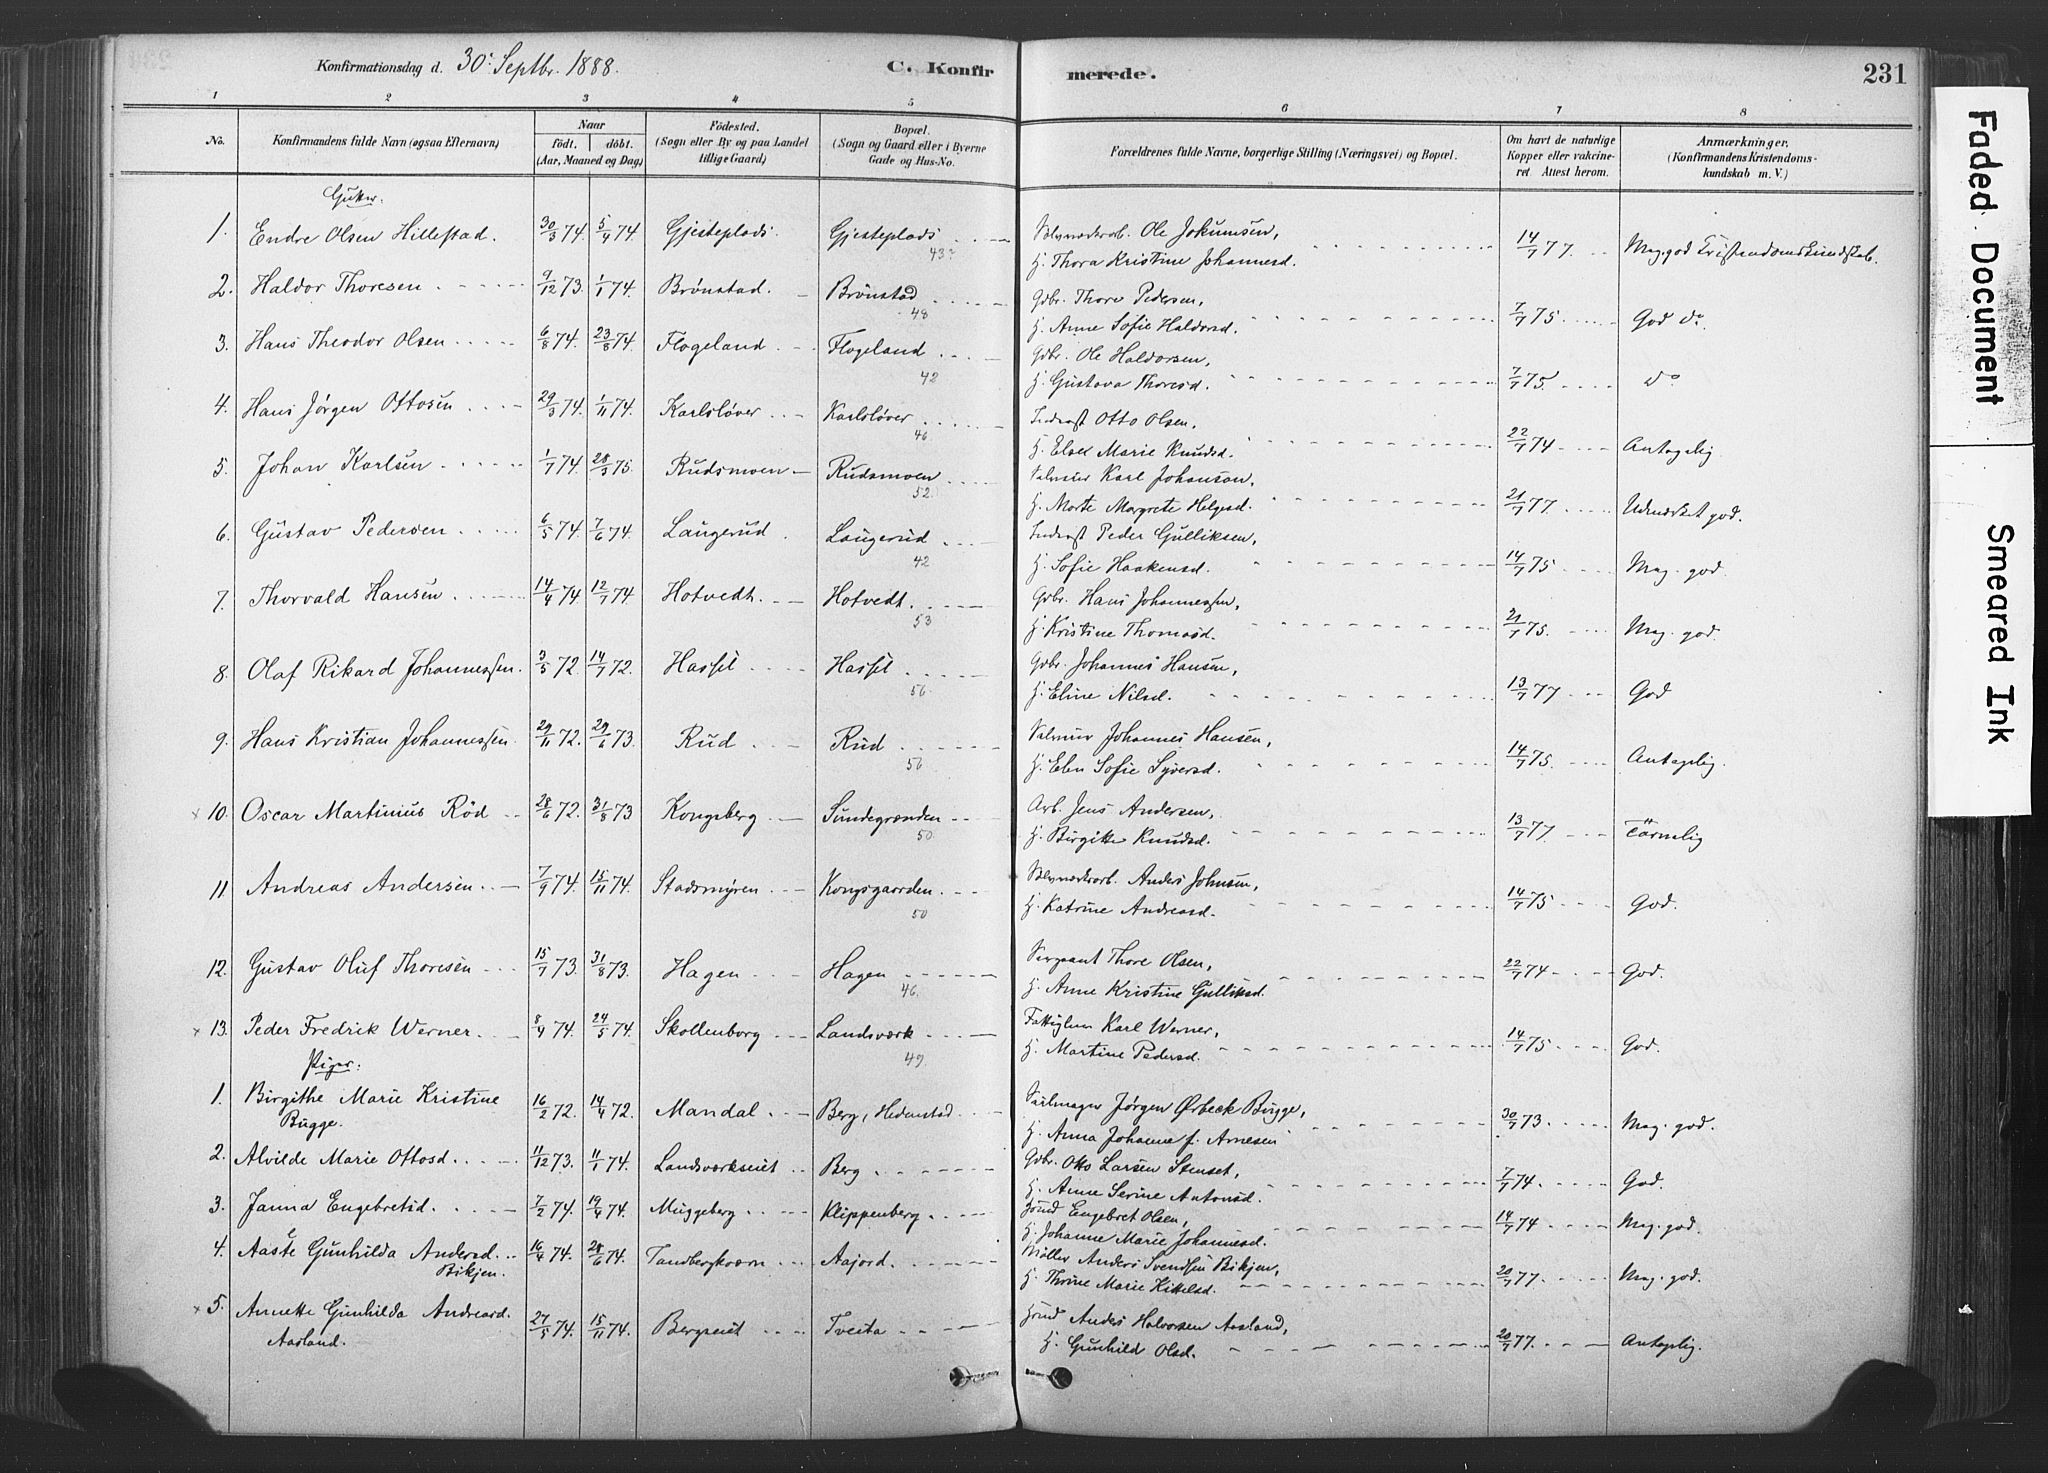 Konfirmationsdag d. 30. Septbr. 1888. C. Konfir merede. 231
1 2 3 4 5 6 7 8
No. Konfirmandens fulde Navn (ogsaa Efternavn) Naar født. døbt. (Aar, Maaned og Dag) Fødested. (Sogn eller By og paa Landet tillige Gaard) Bopæl. (Sogn og Gaard eller i Byerne Gade og Hus-No. Forældrenes fulde Navne, borgerlige Stilling (Næringsvei) og Bopæl. Om havt de naturlige Kopper eller vakcineret Attest herom. Anmærkninger. (Konfirmandens Kristendomskundskab m. V.)
Gutter.
1. Endre Olsen Hillestad. 30/3 74. 5/4 74. Gjesteplads. Gjesteplads 43? Ole Jokumsen,
H. Thora Kristine Johannesd. 14/7 77. Meg. god Kristendomskundskab.
2. Haldor Thoresen 9/12 73. 1/1 74. Brønstad. Brønstad 48 Gdbr. Thore Pedersen,
H. Anne Sofie Haldorsd. 7/7 75 God do
3. Hans Theodor Olsen 6/8 74. 23/8 74. Flogeland Flogeland 42 Gdbr. Ole Haldorsen,
H. Gustava Thoresd. 7/7 75 do
4. Hans Jørgen Ottosen 29/3 74. 1/11 74. Karlsløver Karlsløver 46 Inderst Otto Olsen,
H. Else Marie Knudsd. 22/7 74 Antagelig
5. Johan Karlsen 1/7 74. 28/3 75. Rudsmoen Rudsmoen 52. Karl Johanson,
H. Marte Margrete Helgesd. 21/7 77. Udmærket god.
6. Gustav Pedersen 6/5 74. 7/6 74. Laugerud Laugerud 42 Inderst Peder Gulliksen,
H. Sofie Haakensd. 14/7 75 Meg. god.
7. Thorvald Hansen 14/4 74. 12/7 74. Hotvedt. Hotvedt. 53 Gdbr. Hans Johannessen,
H. Kristine Thomasd. 21/7 75. Meg. god.
8. Olaf Rikard Johannessen. 3/5 72. 14/7 72. Hassel Hassel 56. Gdbr. Johannes Hansen,
H. Eline Nilsd. 13/7 77 God
9. Hans Kristian Johannessen. 29/11 72. 29/6 73. Rud Rud 56 Johannes Hansen,
H. Elen Sofie Syversd. 14/7 75. Antagelig.
x 10. Oscar Martinius Röd 28/6 72. 31/8 73 Kongsberg Sundegrænden 50. Arb. Jens Andersen,
H. Birgitte Knudsd. 13/7 77. Tarvelig
11 Andreas Andersen 7/9 74. 15/11 74. Stadsmyren Kongsgaarden 50 Anders Johnsen,
H. Katrine Andreasd. 14/7 75 God.
12. Gustav Oluf Thoresen 15/7 73. 31/8 73. Hagen Hagen 46. Sergeant Thore Olsen,
H. Anne Kristine Gulliksd. 22/7 74 God.
x 13. Peder Fredrik Werner 8/4 74. 24/5 74. Skollenborg Landsværk 49. Fattiglem Karl Werner,
H. Martine Pedersd. 14/7 75 God.
Piger:
1. Birgithe Marie Kristine
Bugge. 16/2 72. 14/4 72. Mandal Berg, Hedenstad Jørgen Ørbeck Bugge,
H. Anna Johanne f. Arnesen 30/7 73 Meg. god.
2. Alvilde Marie Ottosd. 11/12 73. 11/1 74. Landsværkseiet Berg Gdbr. Otto Larsen Stenset,
H. Anne Serine Antonsd. 7/7 74 God.
3. Janna Engebretsd. 7/2 74. 19/4 74. Muggeberg Klippenberg Engebret Olsen,
H. Johanne Marie Johannesd. 14/7 74 Meg. god.
4. Aaste Gunhilda Andersd.
Bikjen. 16/4 74. 28/6 74. Tandbergkværn Aajord Møller Anders Svendsen Bikjen,
H. Thrine Marie Kittelsd. 20/7 77. Meg. god.
x 5. Annette Gunhilda Andreasd.
Aasland. 27/5 74. 15/11 74. Bergseiet Tveita Anders Halvorsen Aasland,
H. Gunhild Olsd. 20/7 77. Antagelig.
Faded Document
Smeared Ink